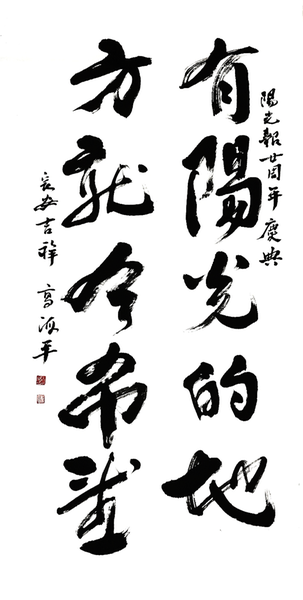 陽光報廿周年慶典
有陽光的地
方就希望
長安吉祥 高平